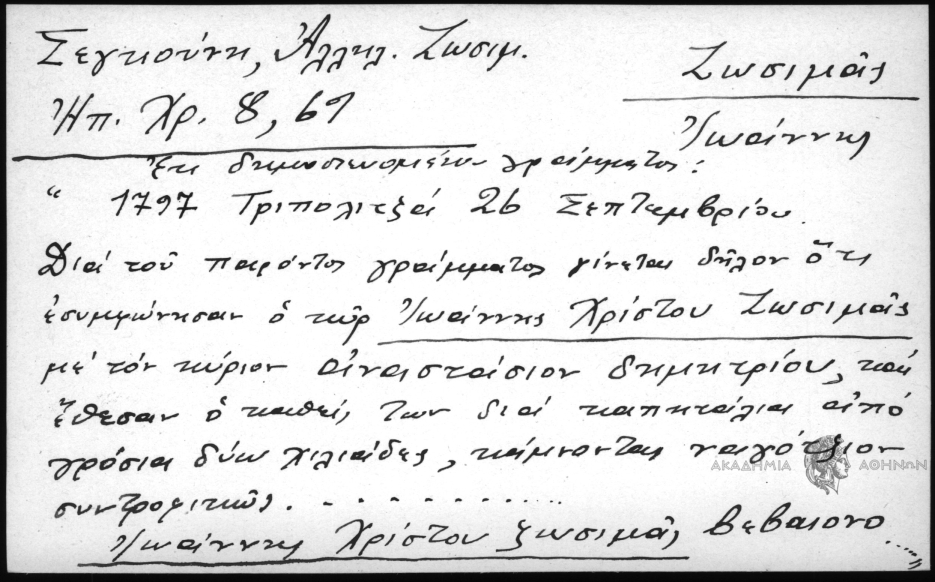 Σεγκούνη, Ἀλληλ. Ζωσιμ.
Ζωσιμᾶς
Ἠπ. Χρ. 8, 69
Ἰωάννης
Ἐκ δημοσιευομένου γράμματος:
“ 1797 Τριπολιτζά 26 Σεπτεμβρίου
Διά τοῦ παρόντος γράμματος γίνεται δῆλον ὅτι
ἐσυμφώνησαν ὁ κῦρ Ἰωάννης Χρίστου Ζωσιμᾶς
μέ τόν κύριον ἀναστάσιον δημητρίου, καί
ἔθεσαν ὁ καθείς των διά καπητάλια ἀπό
γρόσια δύω χιλιάδες, κάμνοντας ναγότζιον
συντροφικῶς. . . . . . . . . . .
Ἰωάννης Χρίστου ζωσιμᾶς βεβαιόνο ....,,
ΑΚΑΔΗΜΙΑ ΑΘΗΝΩΝ